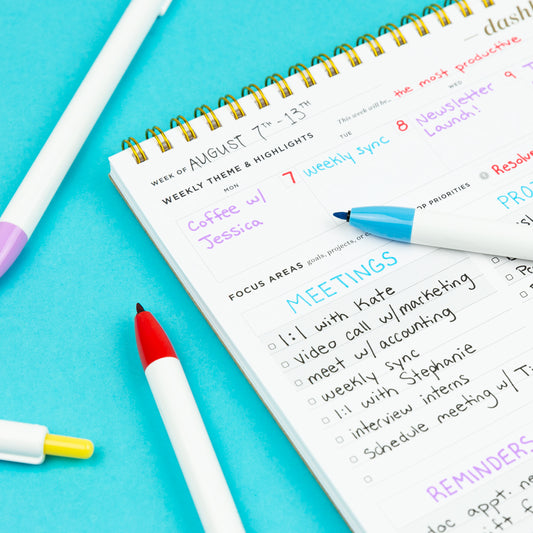 dash
WEEK OF AUGUST 7TH - 13TH
This week will be... the most productive
WEEKLY THEME & HIGHLIGHTS
MON 7
Coffee w/
Jessica
TUE 8
weekly sync
WED 9
Newsletter
Launch!
TOP PRIORITIES
FOCUS AREAS goals, projects, or
MEETINGS
1:1 with Kate
video call w/marketing
meet w/ accounting
weekly sync
1:1 with Stephanie
interview interns
schedule meeting w/
REMINDERS
appt.